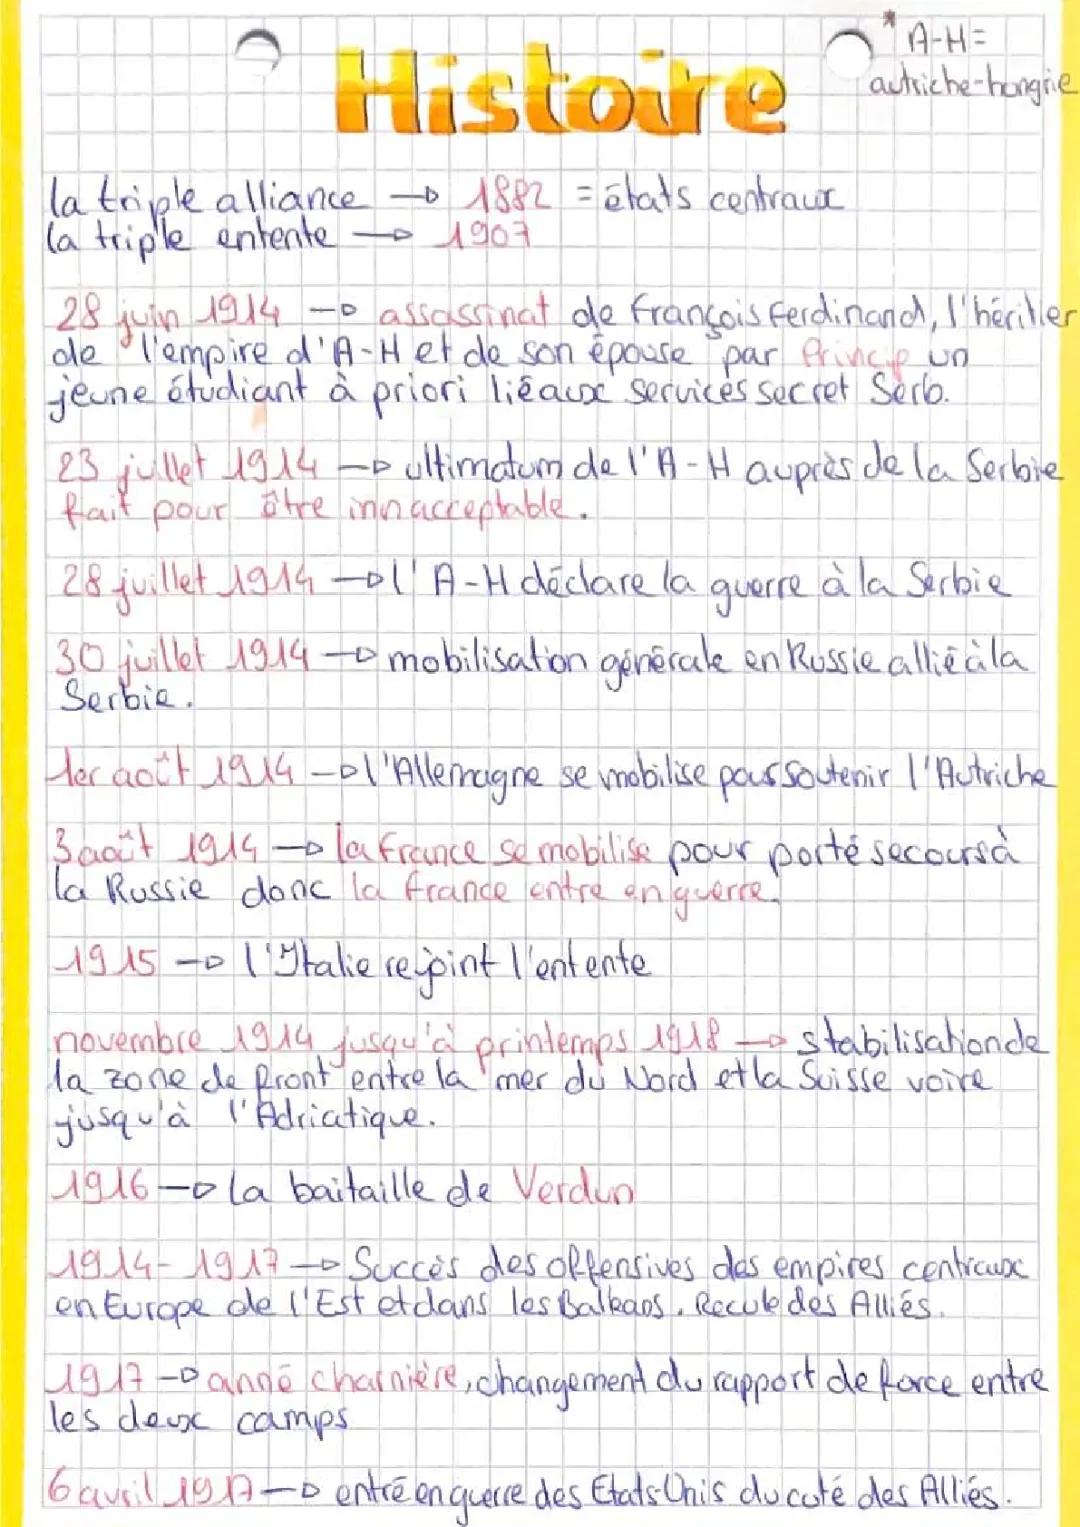 * A-H =
autriche-hongrie
Histoire
la triple alliance → 1882 = états centraux
la triple entente → 1907
28 juin 1914 → assassinat de François Ferdinand, l'héritier
de l'empire d'A-H et de son épouse par Princip un
jeune étudiant à priori liéaux services secret Serb.
23 juillet 1914 → ultimatum de l'A-H auprès de la Serbie
fait pour être innacceptable.
28 juillet 1914 → l'A-H déclare la guerre à la Serbie
30 juillet 1914 → mobilisation générale en Russie allié à la
Serbie.
1er août 1914 → l'Allemagne se mobilise pour soutenir l'Autriche
3 août 1914 → la france se mobilise pour porté secours à
la Russie donc la france entre en guerre.
1915 → l'Italie rejoint l'entente
novembre 1914 jusqu'à printemps 1918 → stabilisation de
la zone de front entre la mer du Nord et la Suisse voire
jusqu'à l'Adriatique.
1916 → la baitaille de Verdun
1914-1917 → Succès des offensives des empires centraux
en Europe de l'Est et dans les Balkans. Recule des Alliés.
1917 → anné charnière, changement du rapport de force entre
les deux camps
6 avril 1917 → entré en guerre des Etats-Unis du coté des Alliés.